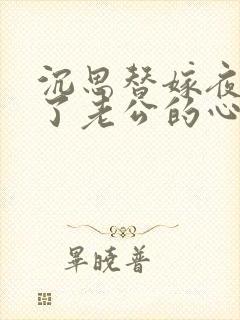 沉思替嫁夜
了老公的心
畢晓普